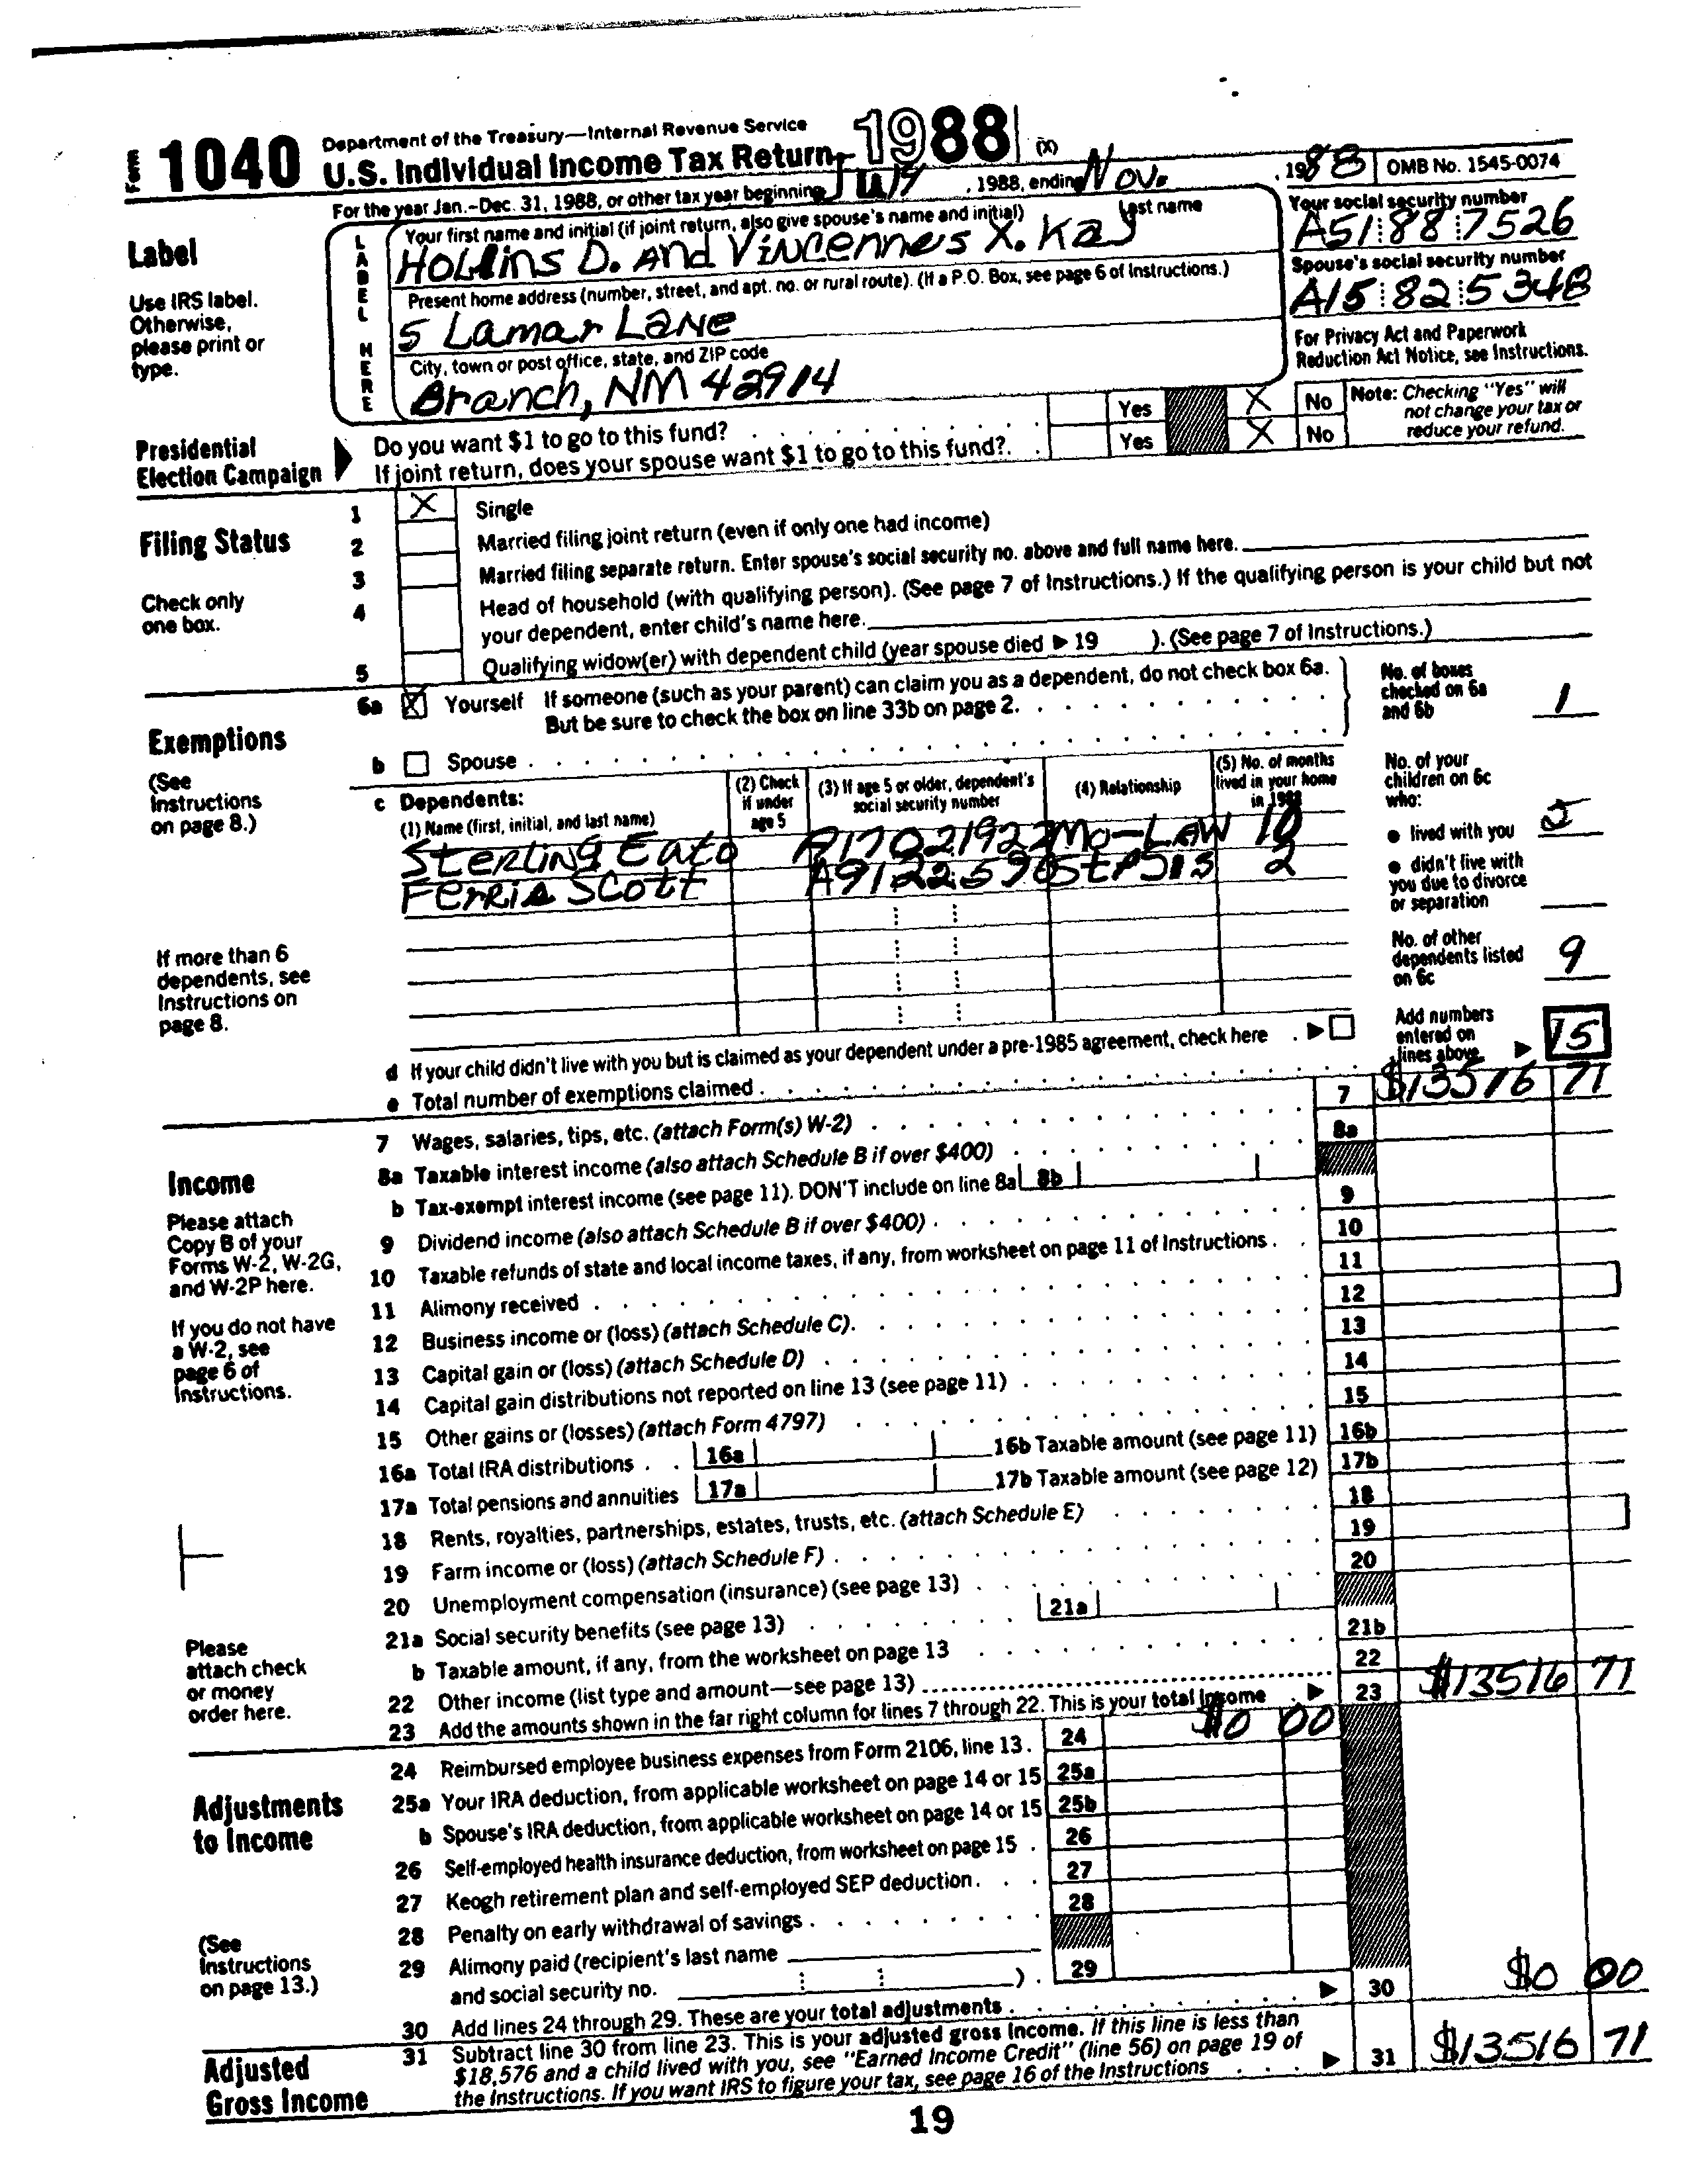 Form 1040 Department of the Treasury—Internal Revenue Service
U.S. Individual Income Tax Return 1988 (X)
For the year Jan.-Dec. 31, 1988, or other tax year beginning July , 1988, ending Nov. , 1988 OMB No. 1545-0074
Label
Use IRS label.
Otherwise,
please print or
type.
LABEL HERE
Your first name and initial (if joint return, also give spouse's name and initial) Last name
Hollins D. And Vincennes X. Kay
Your social security number
A51 88 7526
Present home address (number, street, and apt. no. or rural route). (If a P.O. Box, see page 6 of Instructions.)
5 Lamar Lane
Spouse's social security number
A15 82 5348
City, town or post office, state, and ZIP code
Branch, NM 42914
For Privacy Act and Paperwork
Reduction Act Notice, see Instructions.
Presidential
Election Campaign
Do you want $1 to go to this fund? Yes X No
If joint return, does your spouse want $1 to go to this fund? Yes X No
Note: Checking "Yes" will
not change your tax or
reduce your refund.
Filing Status
Check only
one box.
1 X Single
2 Married filing joint return (even if only one had income)
3 Married filing separate return. Enter spouse's social security no. above and full name here.
4 Head of household (with qualifying person). (See page 7 of Instructions.) If the qualifying person is your child but not
your dependent, enter child's name here.
5 Qualifying widow(er) with dependent child (year spouse died ▶ 19 ). (See page 7 of Instructions.)
Exemptions
(See
Instructions
on page 8.)
6a X Yourself If someone (such as your parent) can claim you as a dependent, do not check box 6a.
But be sure to check the box on line 33b on page 2.
b Spouse
No. of boxes
checked on 6a
and 6b 1
c Dependents:
(1) Name (first, initial, and last name)
(2) Check
if under
age 5
(3) If age 5 or older, dependent's
social security number
(4) Relationship
(5) No. of months
lived in your home
in 1988
Sterling Eato A17021922 Mo-LAW 10
Ferris Scott A9122590 StPSis 2
If more than 6
dependents, see
Instructions on
page 8.
No. of your
children on 6c
who:
• lived with you 5
• didn't live with
you due to divorce
or separation
No. of other
dependents listed
on 6c 9
d If your child didn't live with you but is claimed as your dependent under a pre-1985 agreement, check here ▶
e Total number of exemptions claimed
Add numbers
entered on
lines above ▶ 15
Income
Please attach
Copy B of your
Forms W-2, W-2G,
and W-2P here.
If you do not have
a W-2, see
page 6 of
Instructions.
Please
attach check
or money
order here.
7 Wages, salaries, tips, etc. (attach Form(s) W-2) 7 $13516 71
8a Taxable interest income (also attach Schedule B if over $400) 8a
b Tax-exempt interest income (see page 11). DON'T include on line 8a 8b
9 Dividend income (also attach Schedule B if over $400) 9
10 Taxable refunds of state and local income taxes, if any, from worksheet on page 11 of Instructions 10
11 Alimony received 11
12 Business income or (loss) (attach Schedule C) 12
13 Capital gain or (loss) (attach Schedule D) 13
14 Capital gain distributions not reported on line 13 (see page 11) 14
15 Other gains or (losses) (attach Form 4797) 15
16a Total IRA distributions 16a 16b Taxable amount (see page 11) 16b
17a Total pensions and annuities 17a 17b Taxable amount (see page 12) 17b
18 Rents, royalties, partnerships, estates, trusts, etc. (attach Schedule E) 18
19 Farm income or (loss) (attach Schedule F) 19
20 Unemployment compensation (insurance) (see page 13) 20
21a Social security benefits (see page 13) 21a
b Taxable amount, if any, from the worksheet on page 13 21b
22 Other income (list type and amount—see page 13) 22
23 Add the amounts shown in the far right column for lines 7 through 22. This is your total income ▶ 23 $13516 71
Adjustments
to Income
(See
Instructions
on page 13.)
24 Reimbursed employee business expenses from Form 2106, line 13. 24 $0 00
25a Your IRA deduction, from applicable worksheet on page 14 or 15 25a
b Spouse's IRA deduction, from applicable worksheet on page 14 or 15 25b
26 Self-employed health insurance deduction, from worksheet on page 15 26
27 Keogh retirement plan and self-employed SEP deduction 27
28 Penalty on early withdrawal of savings 28
29 Alimony paid (recipient's last name
and social security no. ) 29
30 Add lines 24 through 29. These are your total adjustments ▶ 30 $0 00
Adjusted
Gross Income
31 Subtract line 30 from line 23. This is your adjusted gross income. If this line is less than
$18,576 and a child lived with you, see "Earned Income Credit" (line 56) on page 19 of
the Instructions. If you want IRS to figure your tax, see page 16 of the Instructions ▶ 31 $13516 71
19